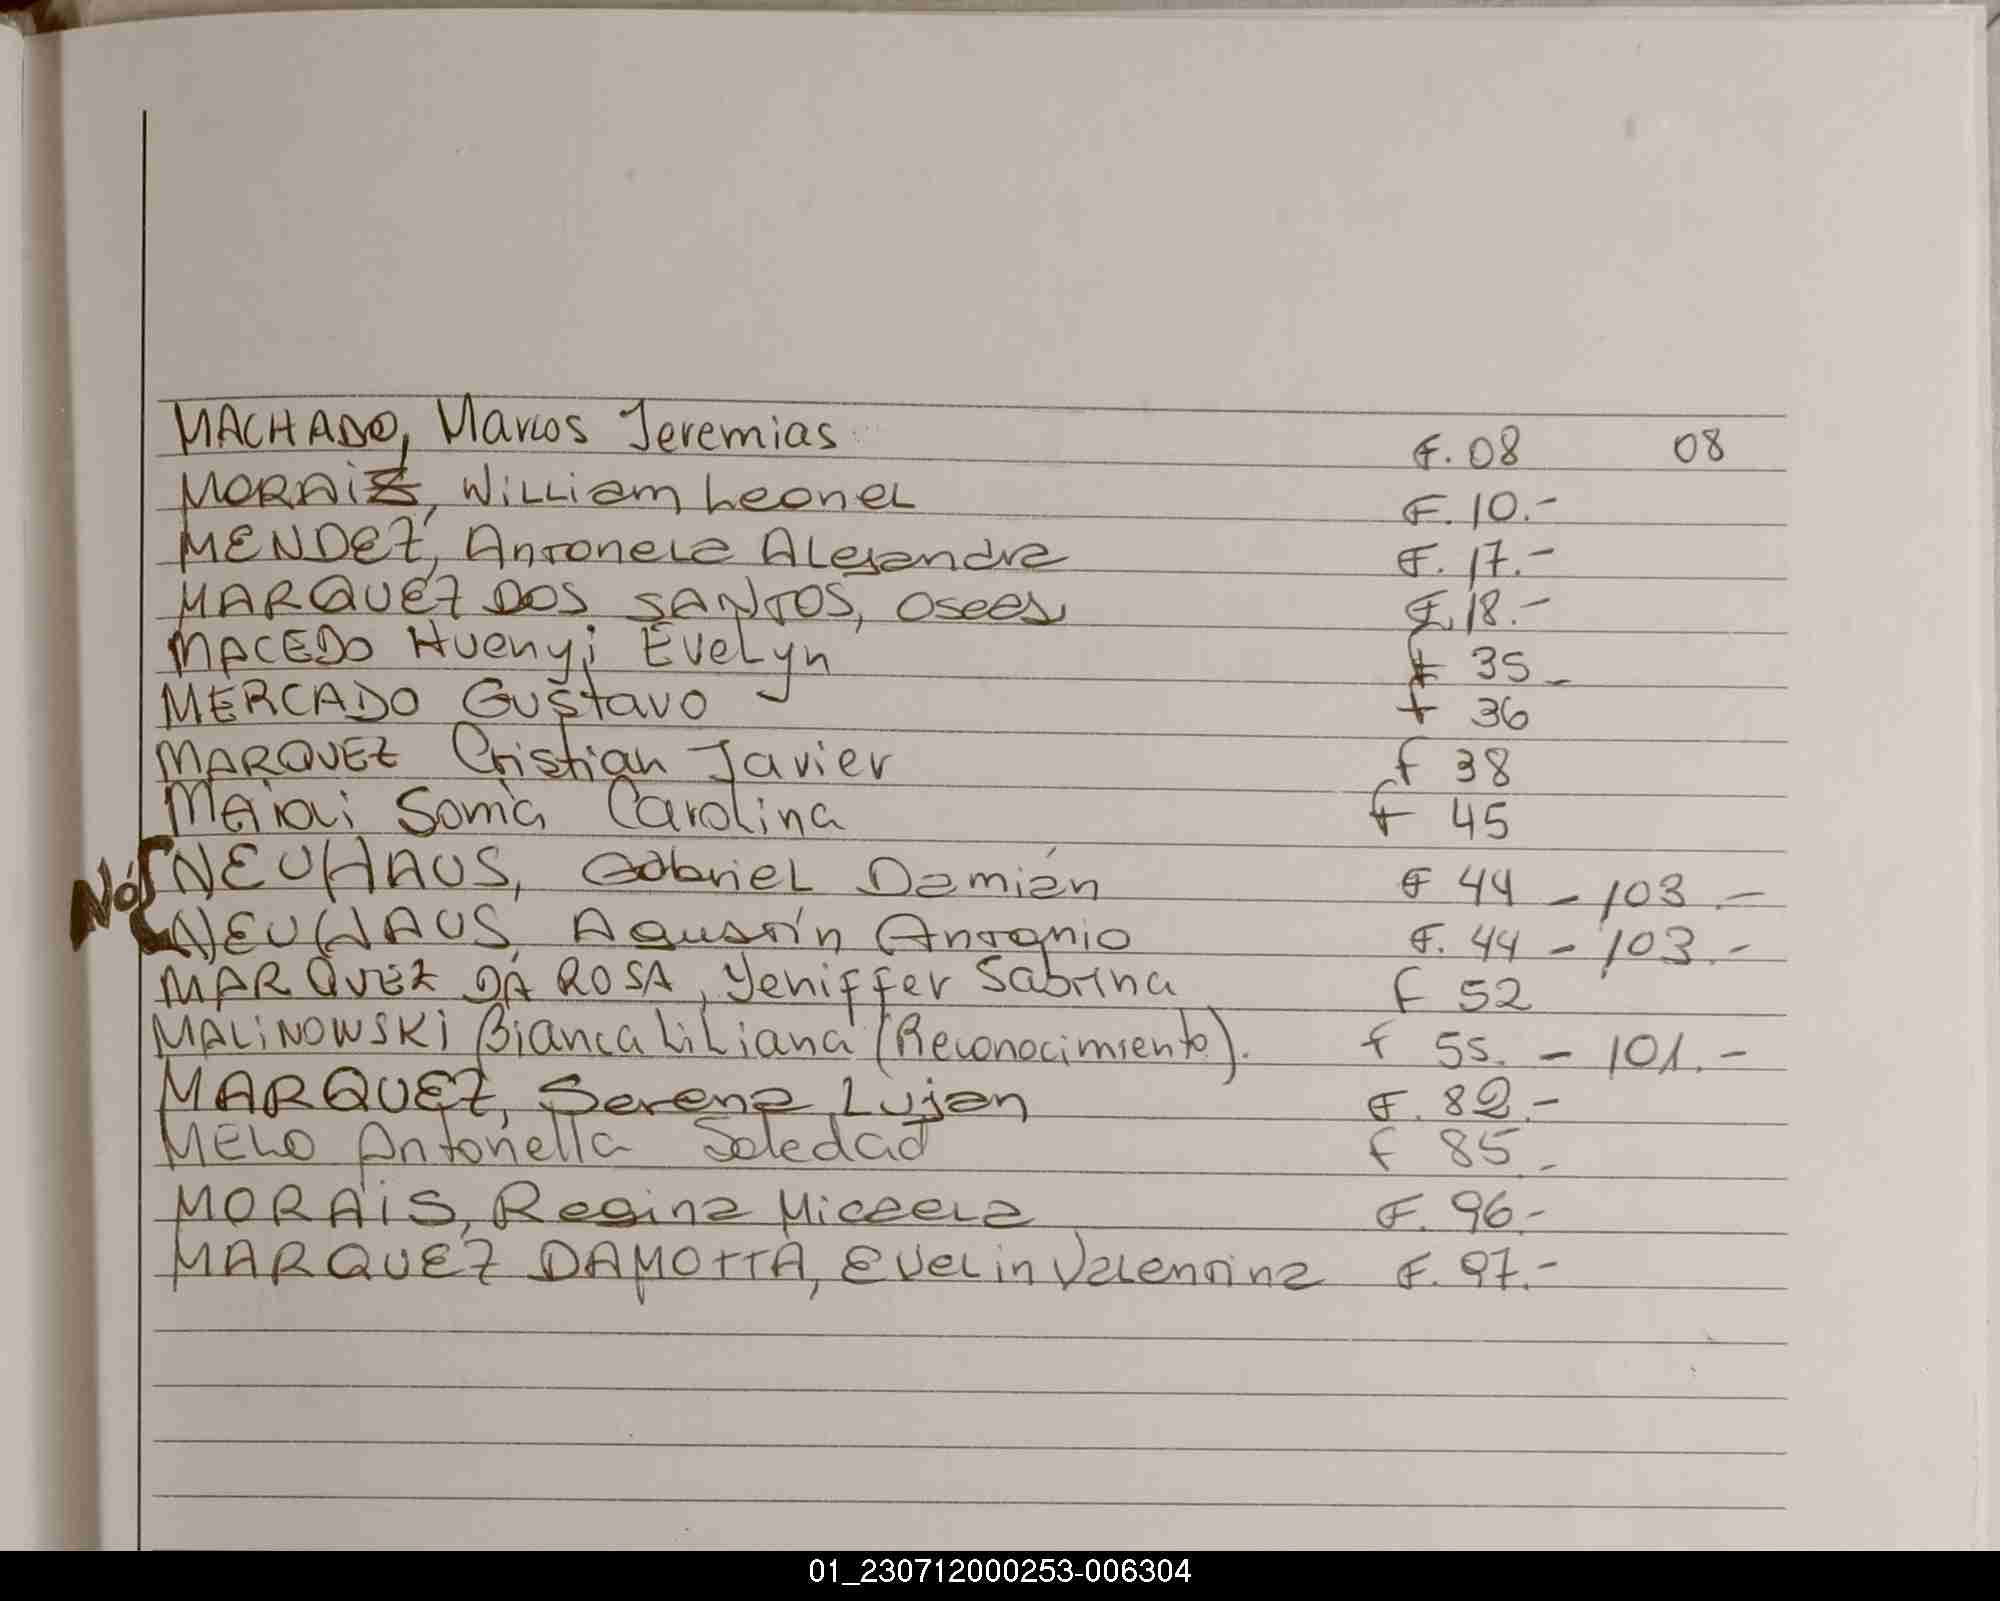 MACHADO, Marcos Jeremias F. 08 08
MORAIS, William Leonel F. 10.-
MENDEZ, Antonela Alejandra F. 17.-
MARQUEZ DOS SANTOS, Osees F. 18.-
MACEDO Huenyi Evelyn F 35-
MERCADO Gustavo F 36
MARQUEZ Cristian Javier F 38
Sonia Carolina F 45
NEUHAUS, Gabriel Damián F 44 - 103.-
No
NEUHAUS, Agustín Antonio F. 44 - 103.-
MARQUEZ DA ROSA, Yeniffer Sabrina F 52
MALiNOWSKi Bianca Liliana (Reconocimiento). F 55. - 101.-
MARQUEZ, Serena Lujan F. 82.-
MELO Antonella Soledad F 85-
MORAIS, Regina Micaela F. 96.-
MARQUEZ DAMOTTA, Evelin Valentina F. 97.-
01_230712000253-006304